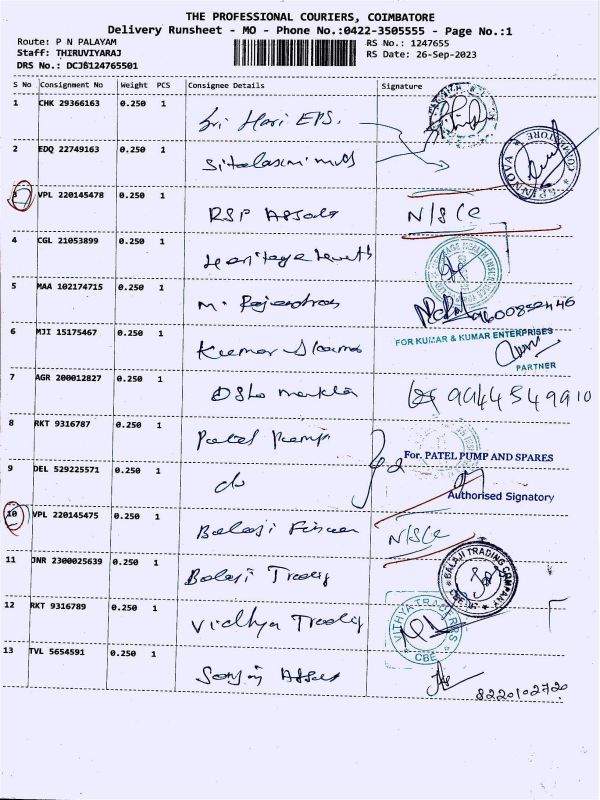 THE PROFESSIONAL COURIERS, COIMBATORE
Delivery Runsheet - MO - Phone No.:0422-3505555 - Page No.:1
Route: P N PALAYAM RS No.: 1247655
Staff: THIRUVIYARAJ RS Date: 26-Sep-2023
DRS No.: DCJB124765501
S No Consignment No Weight PCS Consignee Details Signature
1 CHK 29366163 0.250 1 Sri Hari EPS.
2 EDQ 22749163 0.250 1
3 VPL 220145478 0.250 1 RSP Assols N/S/Ce
4 CGL 21053899 0.250 1 Heritage Health
5 MAA 102174715 0.250 1 M. Rajendran
6 MJI 15175467 0.250 1 Kumar
FOR KUMAR & KUMAR ENTERPRISES
PARTNER
7 AGR 200012827 0.250 1 9944549910
8 RKT 9316787 0.250 1 Patel Pump
For. PATEL PUMP AND SPARES
9 DEL 529225571 0.250 1 do
Authorised Signatory
10 VPL 220145475 0.250 1 Balaji N/S/Ce
11 JNR 2300025639 0.250 1 Balaji Tradg
BALAJI TRADING COMPANY
12 RKT 9316789 0.250 1 Vidhya Tradg
VITHYA TRADERS
CBE
13 TVL 5654591 0.250 1 8220102720